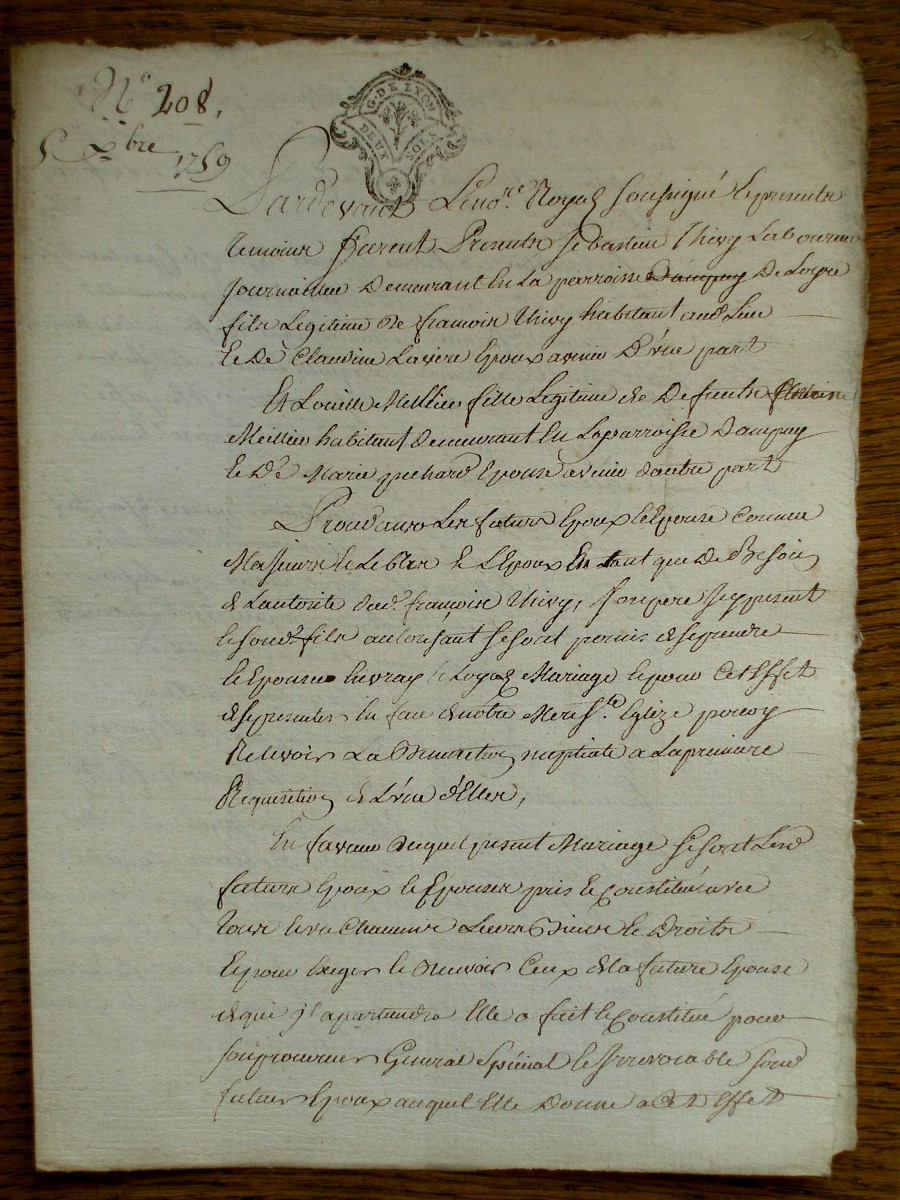 N.º 208,
5 xbre 1759
G. DE LYON
DEUX SOLS
Pardevant Le no.re Royal soussigné & presents
temoins furent Presents sebastien Thivy Laboureur
journallier Demeurant En La parroisse Dampuy De Loyre
fils Legitime de francois Thivy habitant aud. Lieu
& De Claudine Laviere Epoux avenir D'vne part
Et Louise Meillieu fille Legitime de Defunts
Meillieu habitant demeurant En La parroisse Dampuy
& De Marie pichard Epouse avenir dautre part
Les futurs Epoux & Epouse comme
Majeurs & Libres & L'Epoux En tant que De Besoin
de Lautorité dud. françois Thivy, son pere Icy present
& sond. fils autorisant se sont promis de se prendre
& Epouser En vray & Loyal Mariage & pour Cet Effet
de se presenter En face de notre Mere S.te Eglize pour y
Recevoir La Benediction nuptiale a La premiere
Requisition de L'vne d'Elles,
En faveur duquel present Mariage se sont Lesd.
futurs Epoux & Epouse pris & constitué avec
tous & vn Chacuns Leurs Biens & Droits
& pour Exiger & Recevoir Ceux de la future Epouse
de qui j'l apartiendra Elle a fait & Constitué pour
son procureur General Special & Irrevocable sond.
futur Epoux auquel Elle Donne a Cet Effet